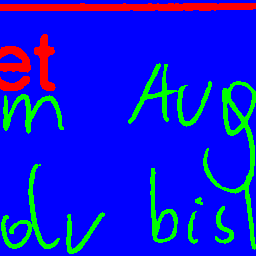 et
m Aug
dv bis